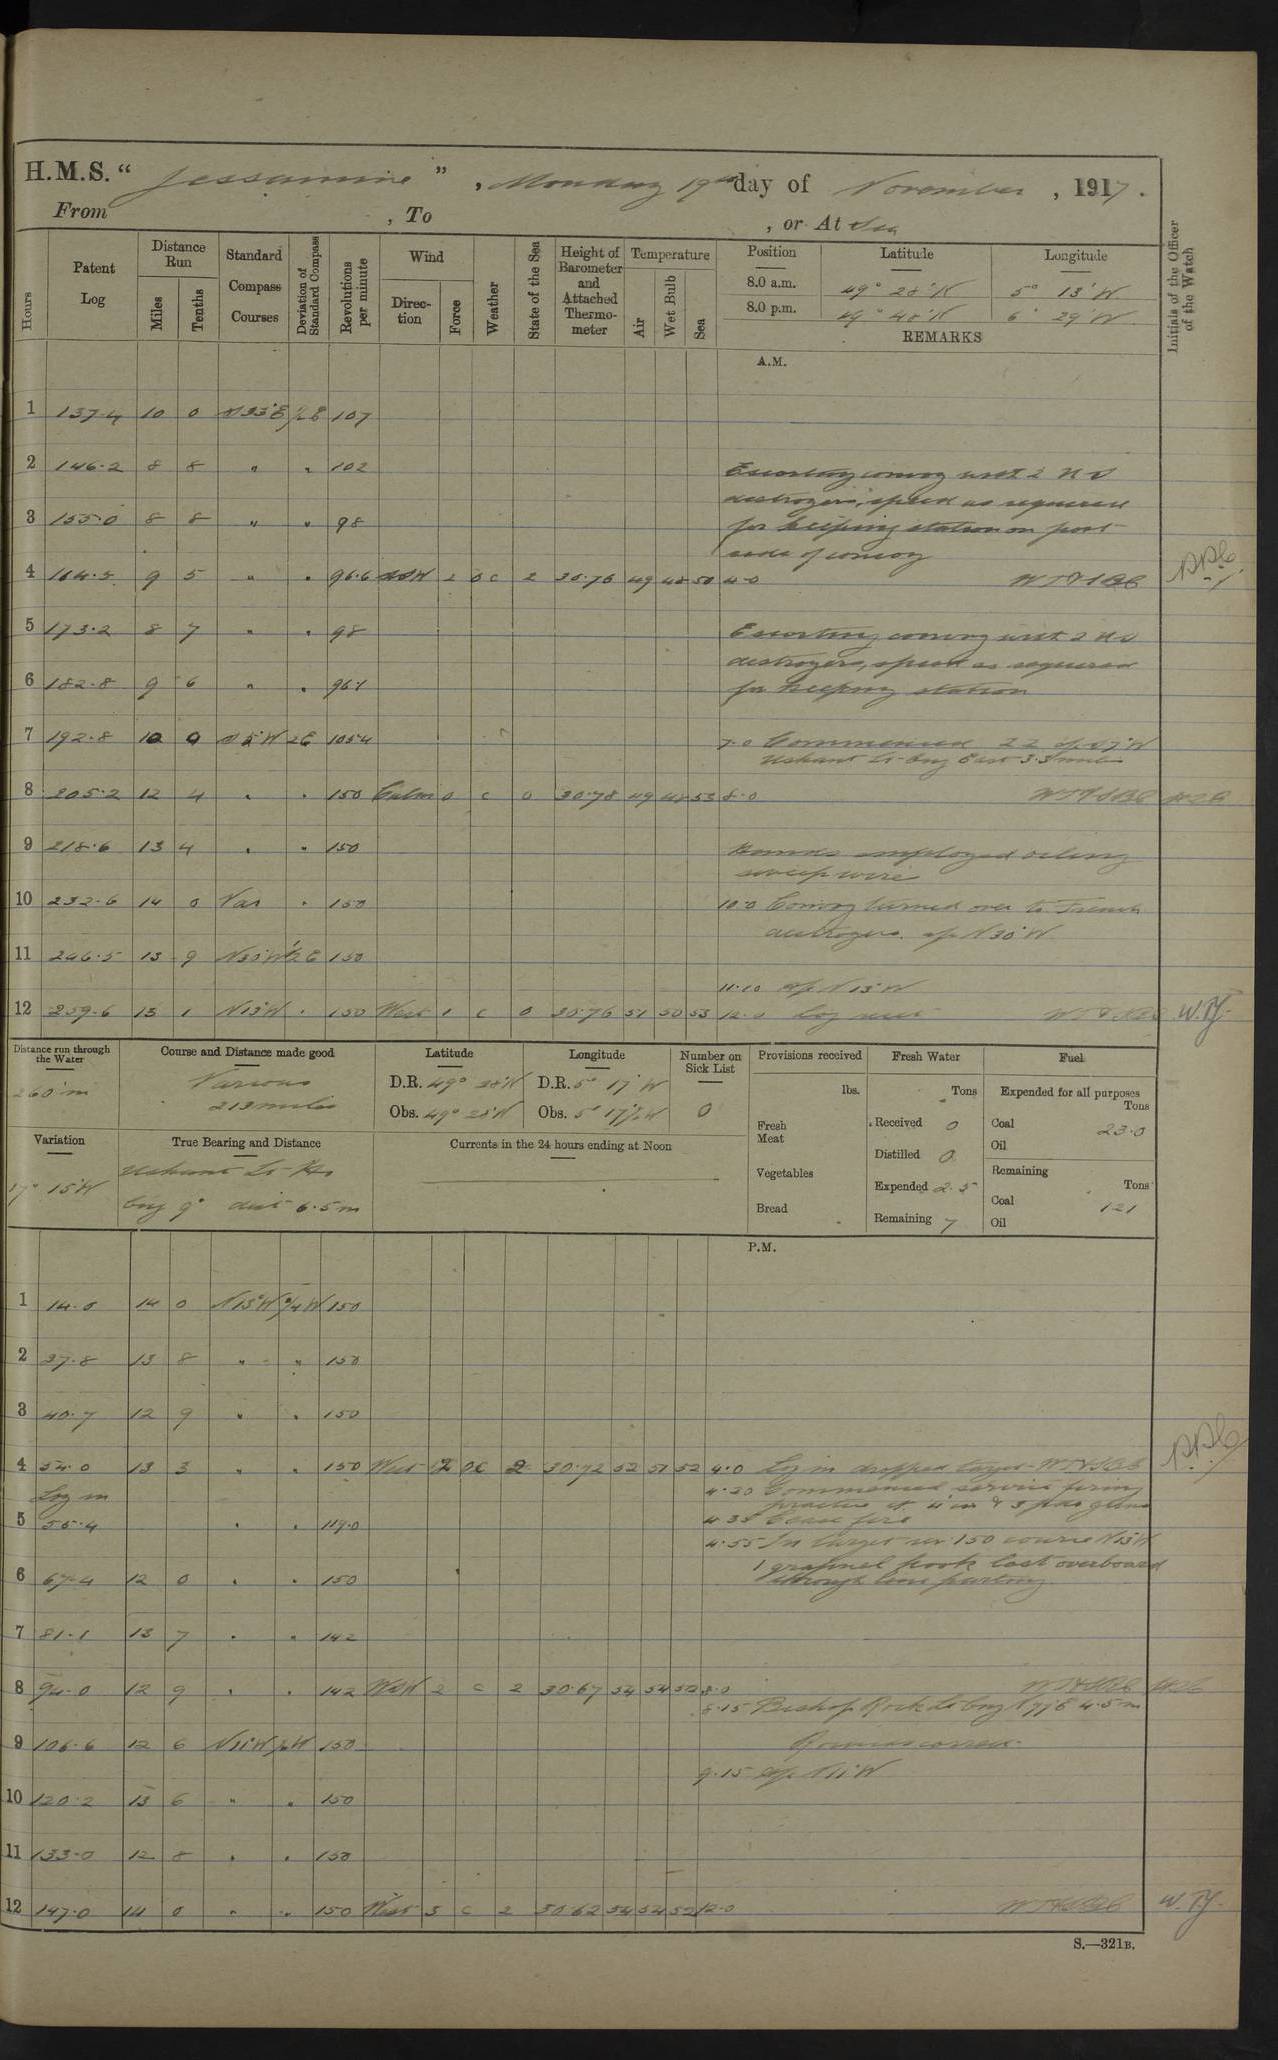 H.M.S. “ Jessamine ” , Monday 19th day of November , 1917.
From , To , or At Sea
Hours
Patent Log
Distance Run
Miles
Tenths
Standard Compass Courses
Deviation of Standard Compass
Revolutions per minute
Wind
Direction
Force
Weather
State of the Sea
Height of Barometer and Attached Thermometer
Temperature
Air
Wet Bulb
Sea
Position Latitude Longitude
8.0 a.m. 49° 28' N 5° 13' W
8.0 p.m. 49° 48' N 6° 29' W
REMARKS
Initials of the Officer of the Watch
A.M.
1 137.4 10 0 107
2 146.2 8 8 " " 102 Escorting convoy with 2 U S
destroyers, speed as requisite
3 155.0 8 8 " " 98 for keeping station on port
side of convoy
4 164.5 9 5 " " 96.6 2 OC 2 30.76 49 48 50 4.0
5 173.2 8 7 " " 98 Escorting convoy with 2 U S
destroyers, speed as required
6 182.8 9 6 " " 96.1 for keeping station
7 192.8 10 0 S 5° W 2E 105.4 7.0 Commenced
Ushant Lt brg East 3.3 miles
8 205.2 12 4 " " 150 Calm 0 C 0 30.78 49 48 53 8.0
9 218.6 13 4 " " 150 Hands employed oiling
sweep wire
10 232.6 14 0 Var " 150 10.0 Convoy turned over to French
destroyers. a/c N30°W
11 246.5 13 9 N30°W 150
11.10 a/c N13°W
12 259.6 13 1 N13°W " 150 West 1 C 0 30.76 51 50 53 12.0 W.T.J.
Distance run through the Water
260 m
Course and Distance made good
Various
213 miles
Latitude
D.R. 49° 28' N
Obs. 49° 28' N
Longitude
D.R. 5° 17' W
Obs. 5° 17½' W
Number on Sick List
0
Provisions received
lbs.
Fresh Meat
Vegetables
Bread
Fresh Water
Tons
Received 0
Distilled 0
Expended 2.5
Remaining 7
Fuel
Expended for all purposes
Tons
Coal 23.0
Oil
Remaining
Tons
Coal 121
Oil
Variation
17° 15' W
True Bearing and Distance
Ushant Lt Ho
brg 9° dist 6.5 m
Currents in the 24 hours ending at Noon
P.M.
1 14.0 14 0 N13°W 150
2 27.8 13 8 " " 150
3 40.7 12 9 " " 150
4 54.0 13 3 " " 150 West 2 OC 2 30.72 52 51 52 4.0 Log in dropped target
Log in 4.20 Commenced service firing
practice at 4 in & 3 pdr guns
5 55.4 " " 119.0 4.35 Cease fire
4.55 In target rev 150 course N13°W
1 grapnel hook lost overboard
6 67.4 12 0 " " 150 through line parting
7 81.1 13 7 " " 142
8 94.0 12 9 " " 142 2 C 2 30.67 54 54 52 8.0
8.15 Bishop Rock Lt brg N77E 4.5 m
9 106.6 12 6 N11°W 150 Rounds correct.
9.15 a/c N11°W
10 120.2 13 6 " " 150
11 133.0 12 8 " " 150
12 147.0 14 0 " " 150 West 3 C 2 30.62 54 54 52 12.0 W.T.J.
S.—321B.